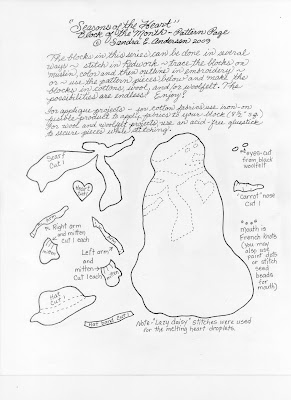 "Seasons of the Heart"
Block of the Month ~ Pattern Page
© Sandra E. Andersen 2009
The blocks in this series can be done in several
ways ~ stitch in Redwork ~ trace the blocks on
muslin, color and then outline in embroidery ~
or ~ use the pattern pieces below and make the
blocks in cottons, wool, and/or woolfelt. The
possibilities are endless! Enjoy!
For applique projects ~ for cotton fabrics use iron-on
fusible product to apply fabrics to your block (8½" sq.)
For wool and woolfelt projects use an acid free gluestick
to secure pieces while stitching.
Scarf
Cut 1
Heart
Cut 1
Right arm
and mitten
Cut 1 each
Left arm
and
mitten
Cut 1
each
Hat
Cut 1
Hat Band Cut 1
eyes-cut
from black
woolfelt
"Carrot" nose
Cut 1
Mouth is
French knots
(you may
also use
paint dots
or stitch
seed
beads for
mouth)
Note- "Lazy daisy" stitches were used
for the melting heart droplets.